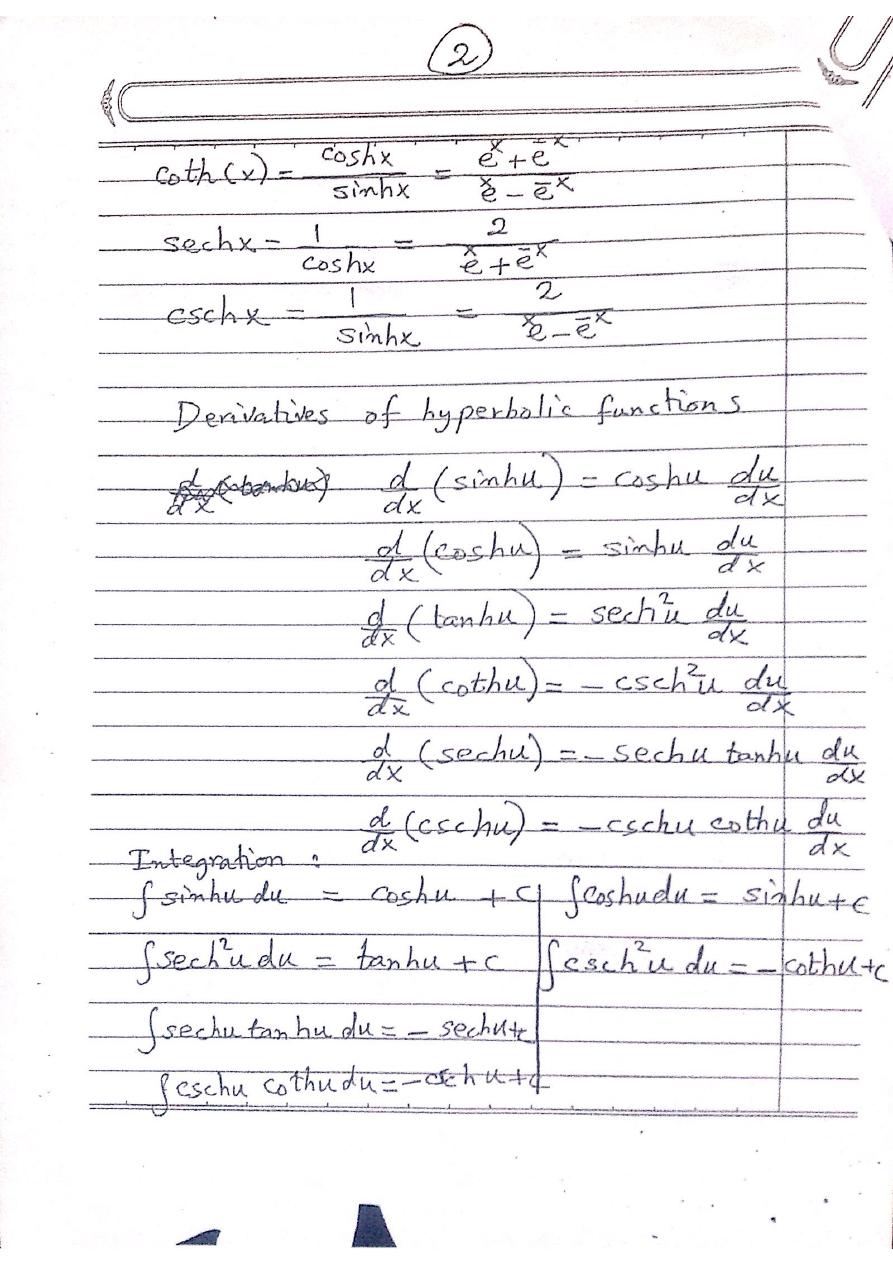 2
coth(x) = coshx / sinhx = eˣ + e⁻ˣ / eˣ - e⁻ˣ
sechx = 1 / coshx = 2 / eˣ + e⁻ˣ
cschx = 1 / sinhx = 2 / eˣ - e⁻ˣ
Derivatives of hyperbolic functions
d/dx (sinhu) = coshu du/dx
d/dx (coshu) = sinhu du/dx
d/dx (tanhu) = sech²u du/dx
d/dx (cothu) = - csch²u du/dx
d/dx (sechu) = - sechu tanhu du/dx
d/dx (cschu) = - cschu cothu du/dx
Integration :
∫ sinhu du = coshu + c | ∫ coshu du = sinhu + c
∫ sech²u du = tanhu + c | ∫ csch²u du = - cothu + c
∫ sechu tanhu du = - sechu + c
∫ cschu cothu du = - cschu + c